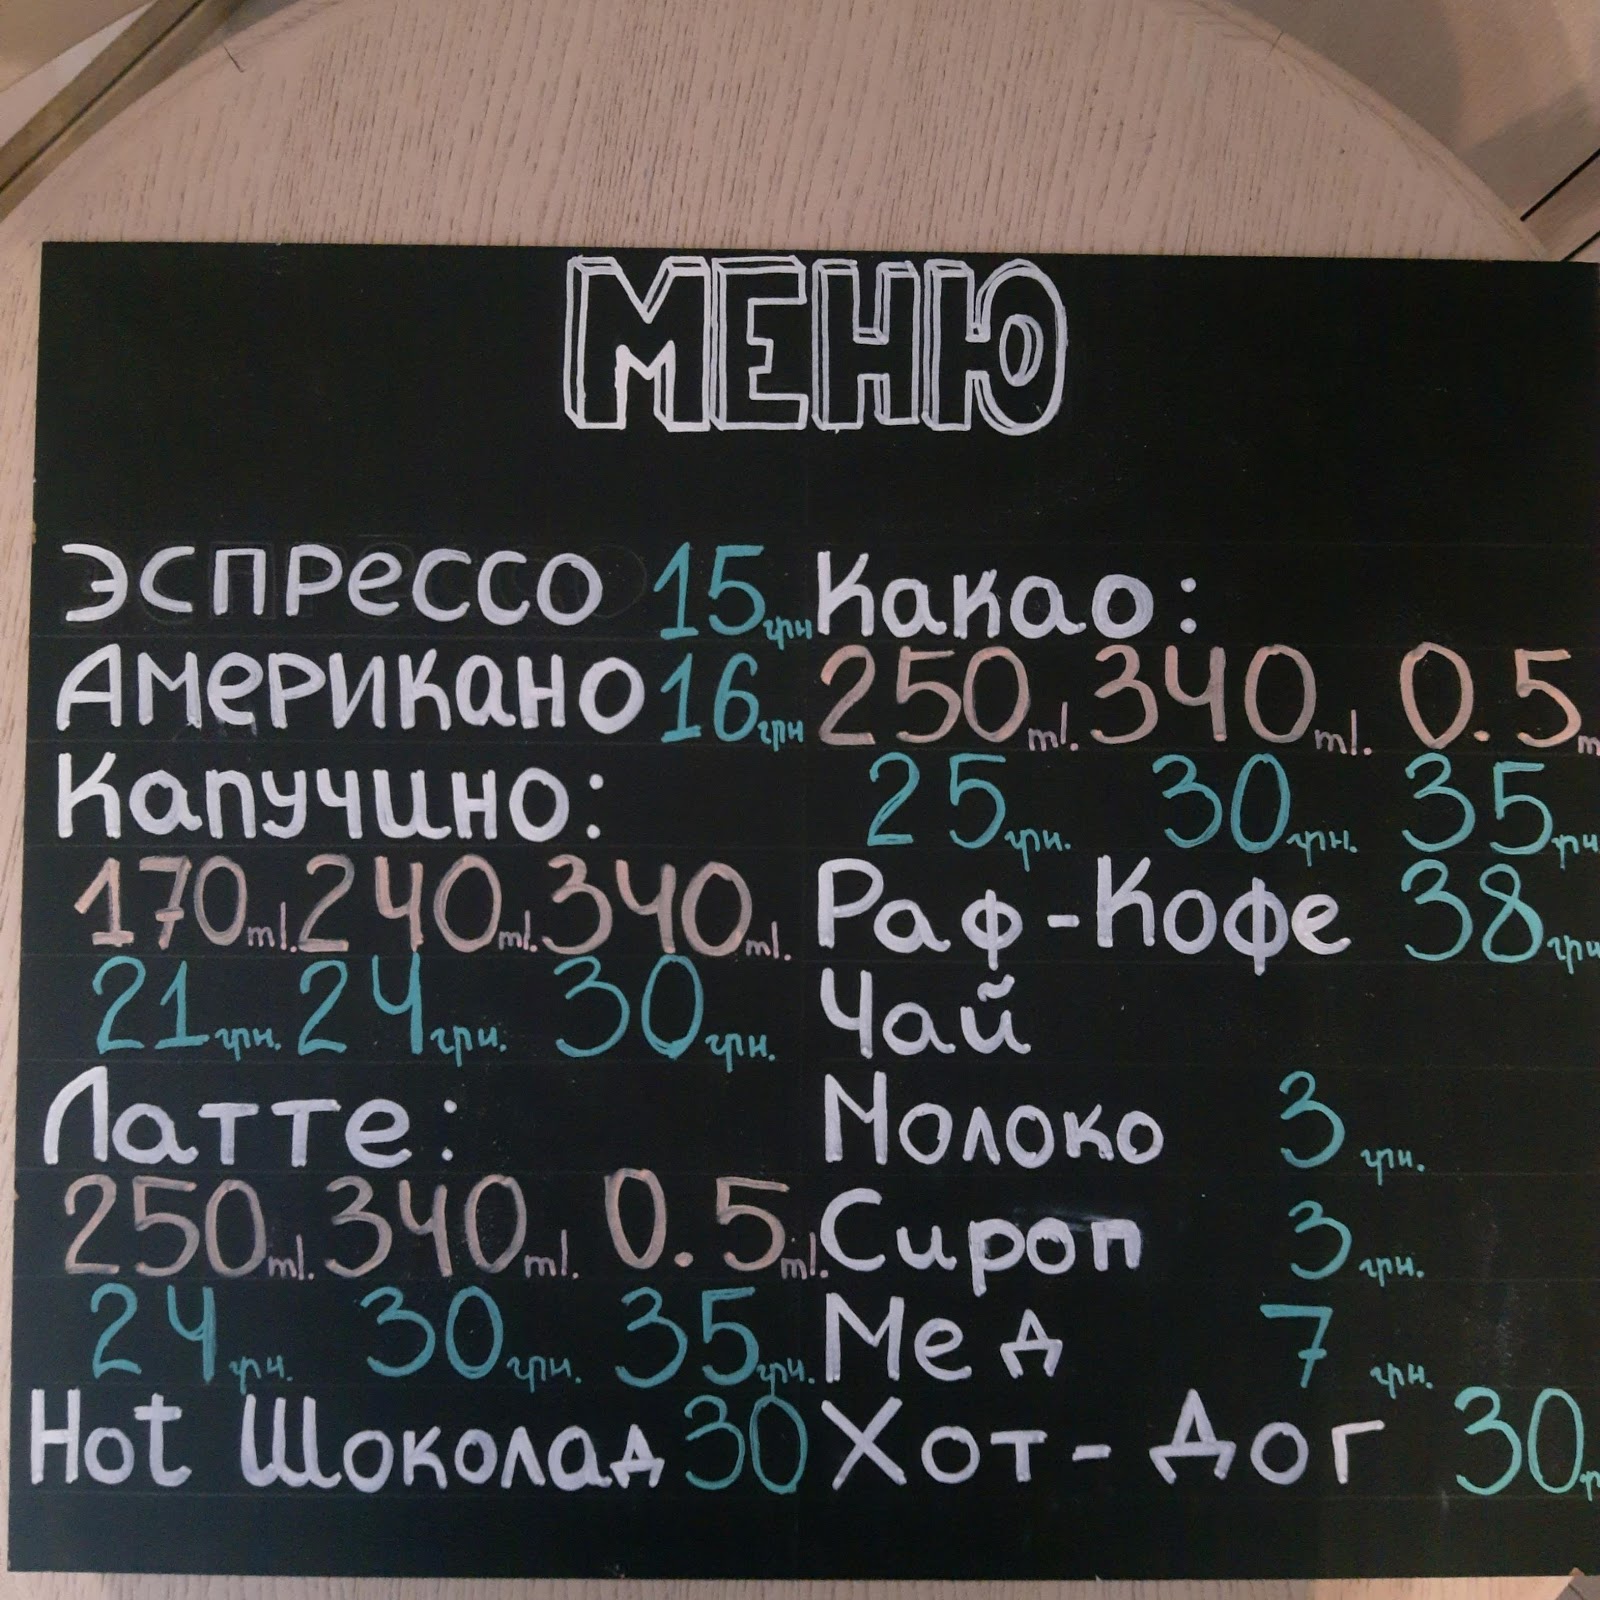 МЕНЮ
Эспрессо 15грн
Американо 16грн
Капучино:
170ml. 240ml. 340ml.
21грн. 24грн. 30грн.
Латте:
250ml. 340ml. 0.5ml.
24грн. 30грн. 35грн.
Hot Шоколад 30
Какао:
250ml. 340ml. 0.5m
25грн. 30грн. 35грн
Раф-Кофе 38грн
Чай
Молоко 3грн.
Сироп 3грн.
Мед 7грн.
Хот-Дог 30г